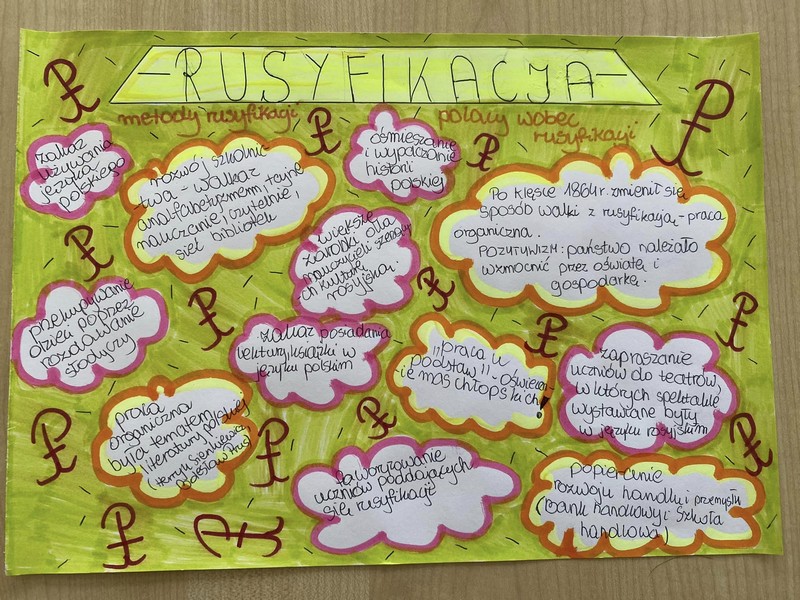 -RUSYFIKACJA-
metody rusyfikacji
polacy wobec
rusyfikacji
zakaz
używania
języka
polskiego
rozwój szkolnic
twa - walka z
analfabetyzmem, tajne
nauczanie, czytelnie,
sieć bibliotek
ośmieszanie
i wypaczanie
historii
polskiej
Po klęsce 1864r. zmienił się
sposób walki z rusyfikacją - praca
organiczna.
POZYTYWIZM: państwo należało
wzmocnić przez oświatę i
gospodarkę.
większe
zarobki dla
nauczycieli szerzący
ch kulturę
rosyjską.
przekupywanie
dzieci poprzez
rozdawanie
słodyczy
zakaz posiadania
lektury/książki w
języku polskim
"praca u
podstaw" - oświecan-
ie mas chłopskich
!
zapraszanie
uczniów do teatrów,
w których spektakle
wystawiane były
w języku rosyjskim
praca
organiczna
była tematem
literatury polskiej
(Henryk Sienkiewicz,
Bolesław Prus)
faworyzowanie
uczniów poddających
się rusyfikacji
popieranie
rozwoju handlu i przemysłu
(bank handlowy i Szkoła
handlowa)